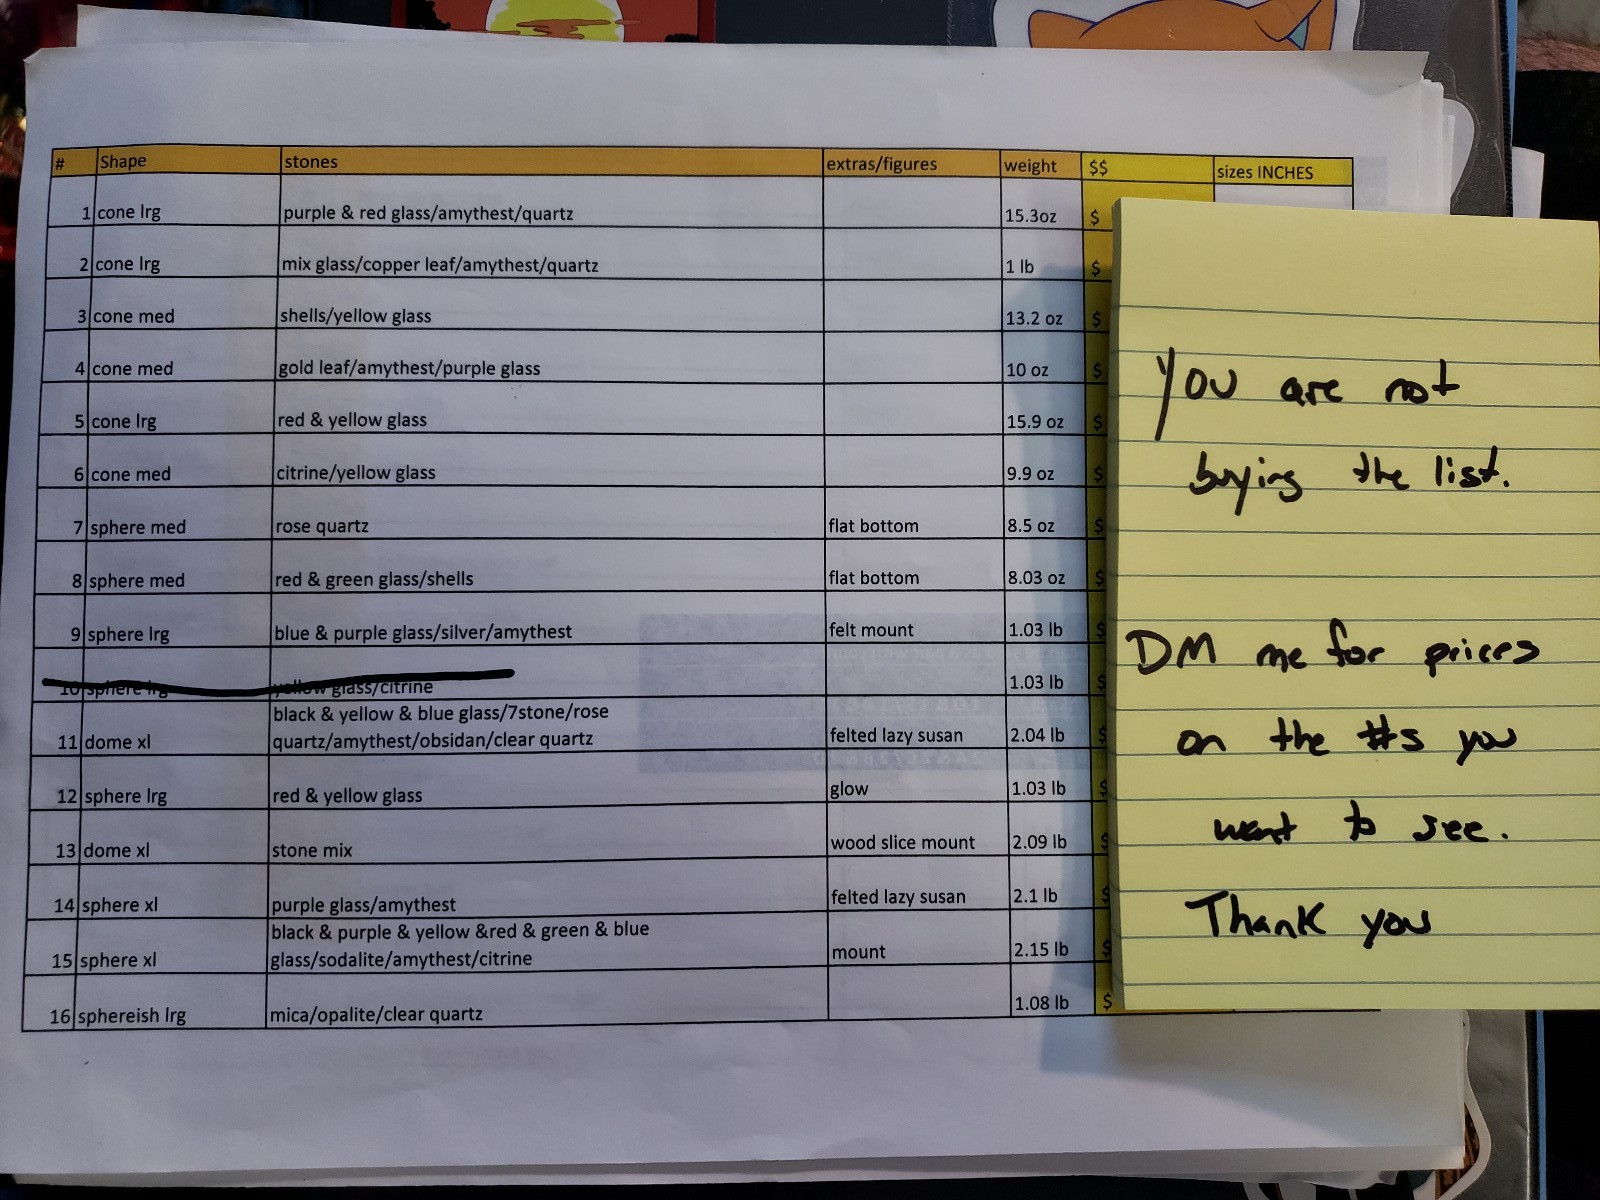 # Shape stones extras/figures weight $$ sizes INCHES
1 cone lrg purple & red glass/amythest/quartz 15.3oz $
2 cone lrg mix glass/copper leaf/amythest/quartz 1 lb $
3 cone med shells/yellow glass 13.2 oz $
4 cone med gold leaf/amythest/purple glass 10 oz $
5 cone lrg red & yellow glass 15.9 oz $
6 cone med citrine/yellow glass 9.9 oz $
7 sphere med rose quartz flat bottom 8.5 oz $
8 sphere med red & green glass/shells flat bottom 8.03 oz $
9 sphere lrg blue & purple glass/silver/amythest felt mount 1.03 lb $
10 sphere lrg yellow glass/citrine 1.03 lb $
black & yellow & blue glass/7stone/rose
11 dome xl quartz/amythest/obsidan/clear quartz felted lazy susan 2.04 lb $
12 sphere lrg red & yellow glass glow 1.03 lb $
13 dome xl stone mix wood slice mount 2.09 lb $
14 sphere xl purple glass/amythest felted lazy susan 2.1 lb $
black & purple & yellow &red & green & blue
15 sphere xl glass/sodalite/amythest/citrine mount 2.15 lb $
16 sphereish lrg mica/opalite/clear quartz 1.08 lb $
You are not
buying the list.
DM me for prices
on the #s you
want to see.
Thank you